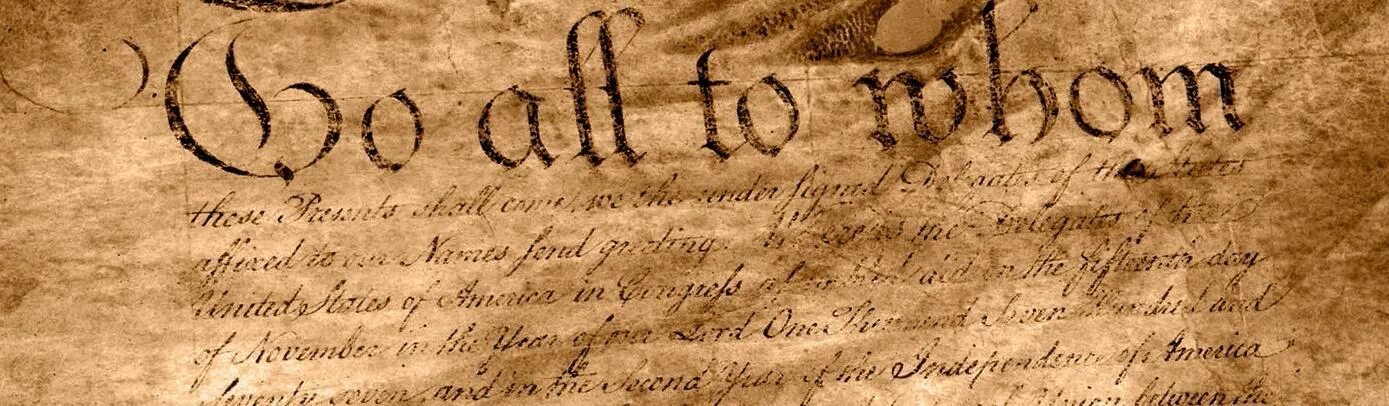 To all to whom
these Presents shall come, we the under signed Delegates of the States
affixed to our Names send greeting. Whereas the Delegates of the
United States of America in Congress assembled did on the fifteenth day
of November in the Year of our Lord One Thousand Seven Hundred and
Seventy seven, and in the Second Year of the Independence of America
Union between the